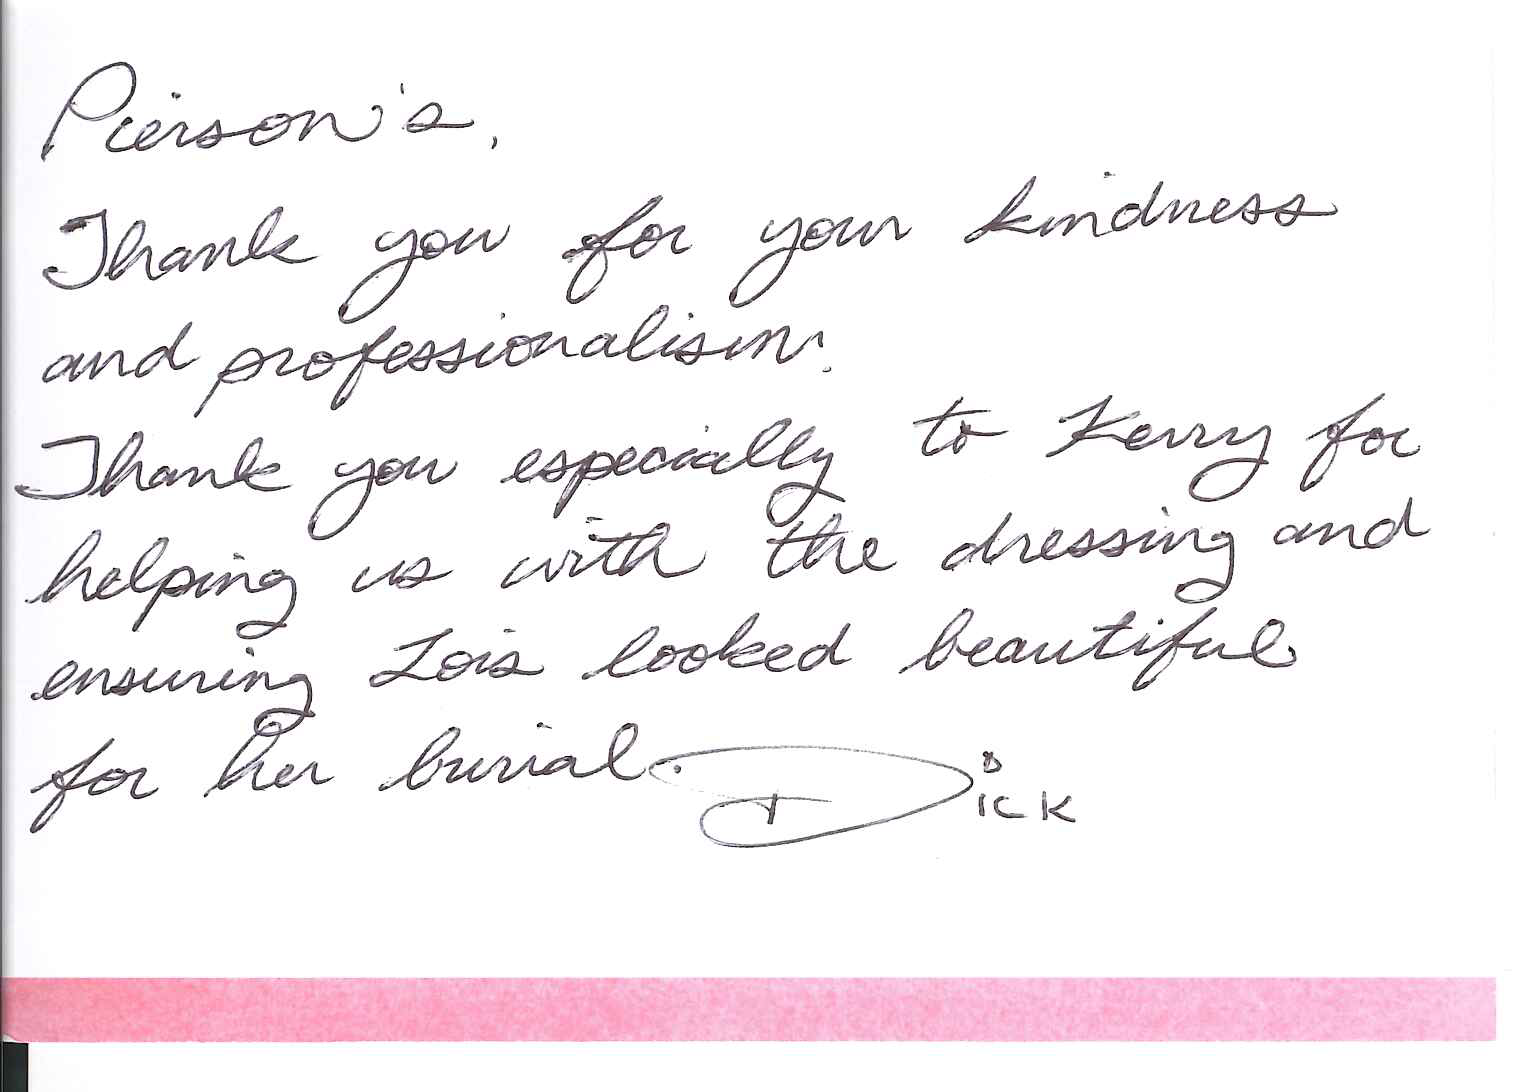 Pierson's,
Thank you for your kindness
and professionalism.
Thank you especially to Kerry for
helping us with the dressing and
ensuring Lois looked beautiful
for her burial. Dick